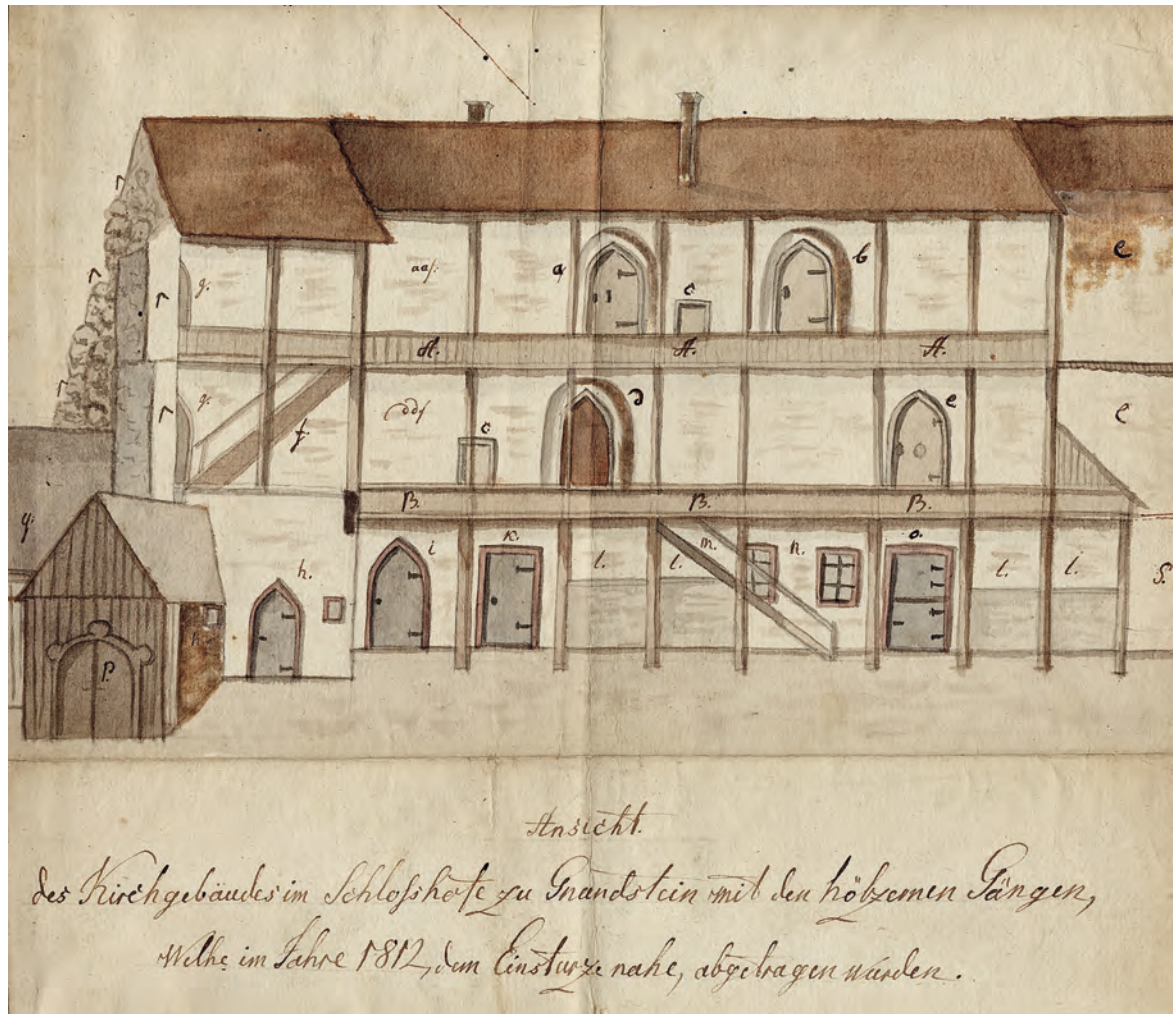 aa/.
a
c.
b
e
r
g.
A.
A.
A.
r
g.
f.
dd/
c.
d
e
e
B.
B.
B.
q.
h.
i
k.
l.
l.
m.
n.
o.
l.
l.
S.
h.
p.
Ansicht.
des Kirchgebäudes im Schloßhofe zu Gnandstein mit den hölzernen Gängen,
Welche im Jahre 1812, dem Einsturze nahe, abgetragen wurden.